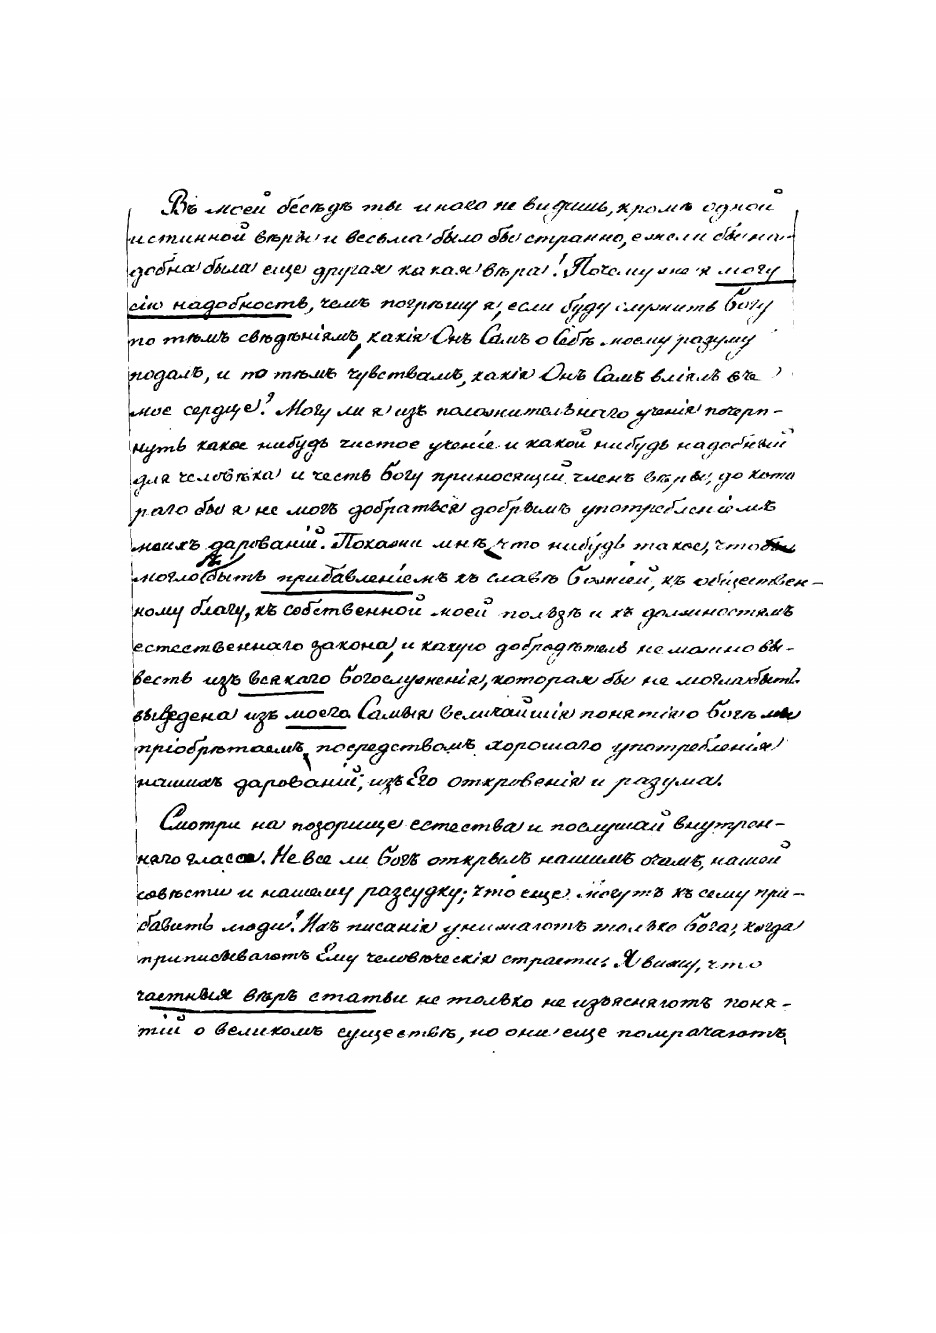 Въ моей бесѣдѣ ты инаго не видишь, кромѣ одной
истинной вѣры и весьма было бы странно, ежели бы на-
добна была еще другая какая вѣра! Почему же я могу
сію надобность, чемъ погрѣшу я, если буду служить Богу
по тѣмъ свѣдѣніямъ, какія Онъ Самъ о Себѣ моему разуму
подалъ, и по тѣмъ чувствамъ, какія Онъ Самъ вліялъ въ
мое сердце? Могу ли я изъ положительнаго ученія почерп-
нуть какое нибудь чистое ученіе и какой нибудь надобный
для человѣка и честь Богу приносящій членъ вѣры, до кото
раго бы я не могъ добраться добрымъ употребленіемъ
моихъ дарованій. Покажи мнѣ, что нибудь такое, что
могло бы быть прибавленіемъ къ славѣ Божіей, къ обществен-
ному благу, къ собственной моей пользѣ и къ должностямъ
естественнаго закона, и какую добродѣтель не можно вы-
весть изъ всякаго богослуженія, которая бы не могла быть
выведена изъ моего. Самыя величайшія понятія о Богѣ мы
пріобрѣтаемъ, посредствомъ хорошаго употребленія
нашихъ дарованій, изъ Его откровенія и разума.
Смотри на позорище естества и послушай внутрен-
няго гласа. Не все ли Богъ открылъ нашимъ очамъ, нашей
совѣсти и нашему разсудку; что еще могутъ къ сему при-
бавить люди? Ихъ писанія унижаютъ только Бога, когда
приписываютъ Ему человѣческія страсти: Я вижу, что
частныя вѣръ статьи не только не изъясняютъ поня-
тій о великомъ существѣ, но они еще помрачаютъ